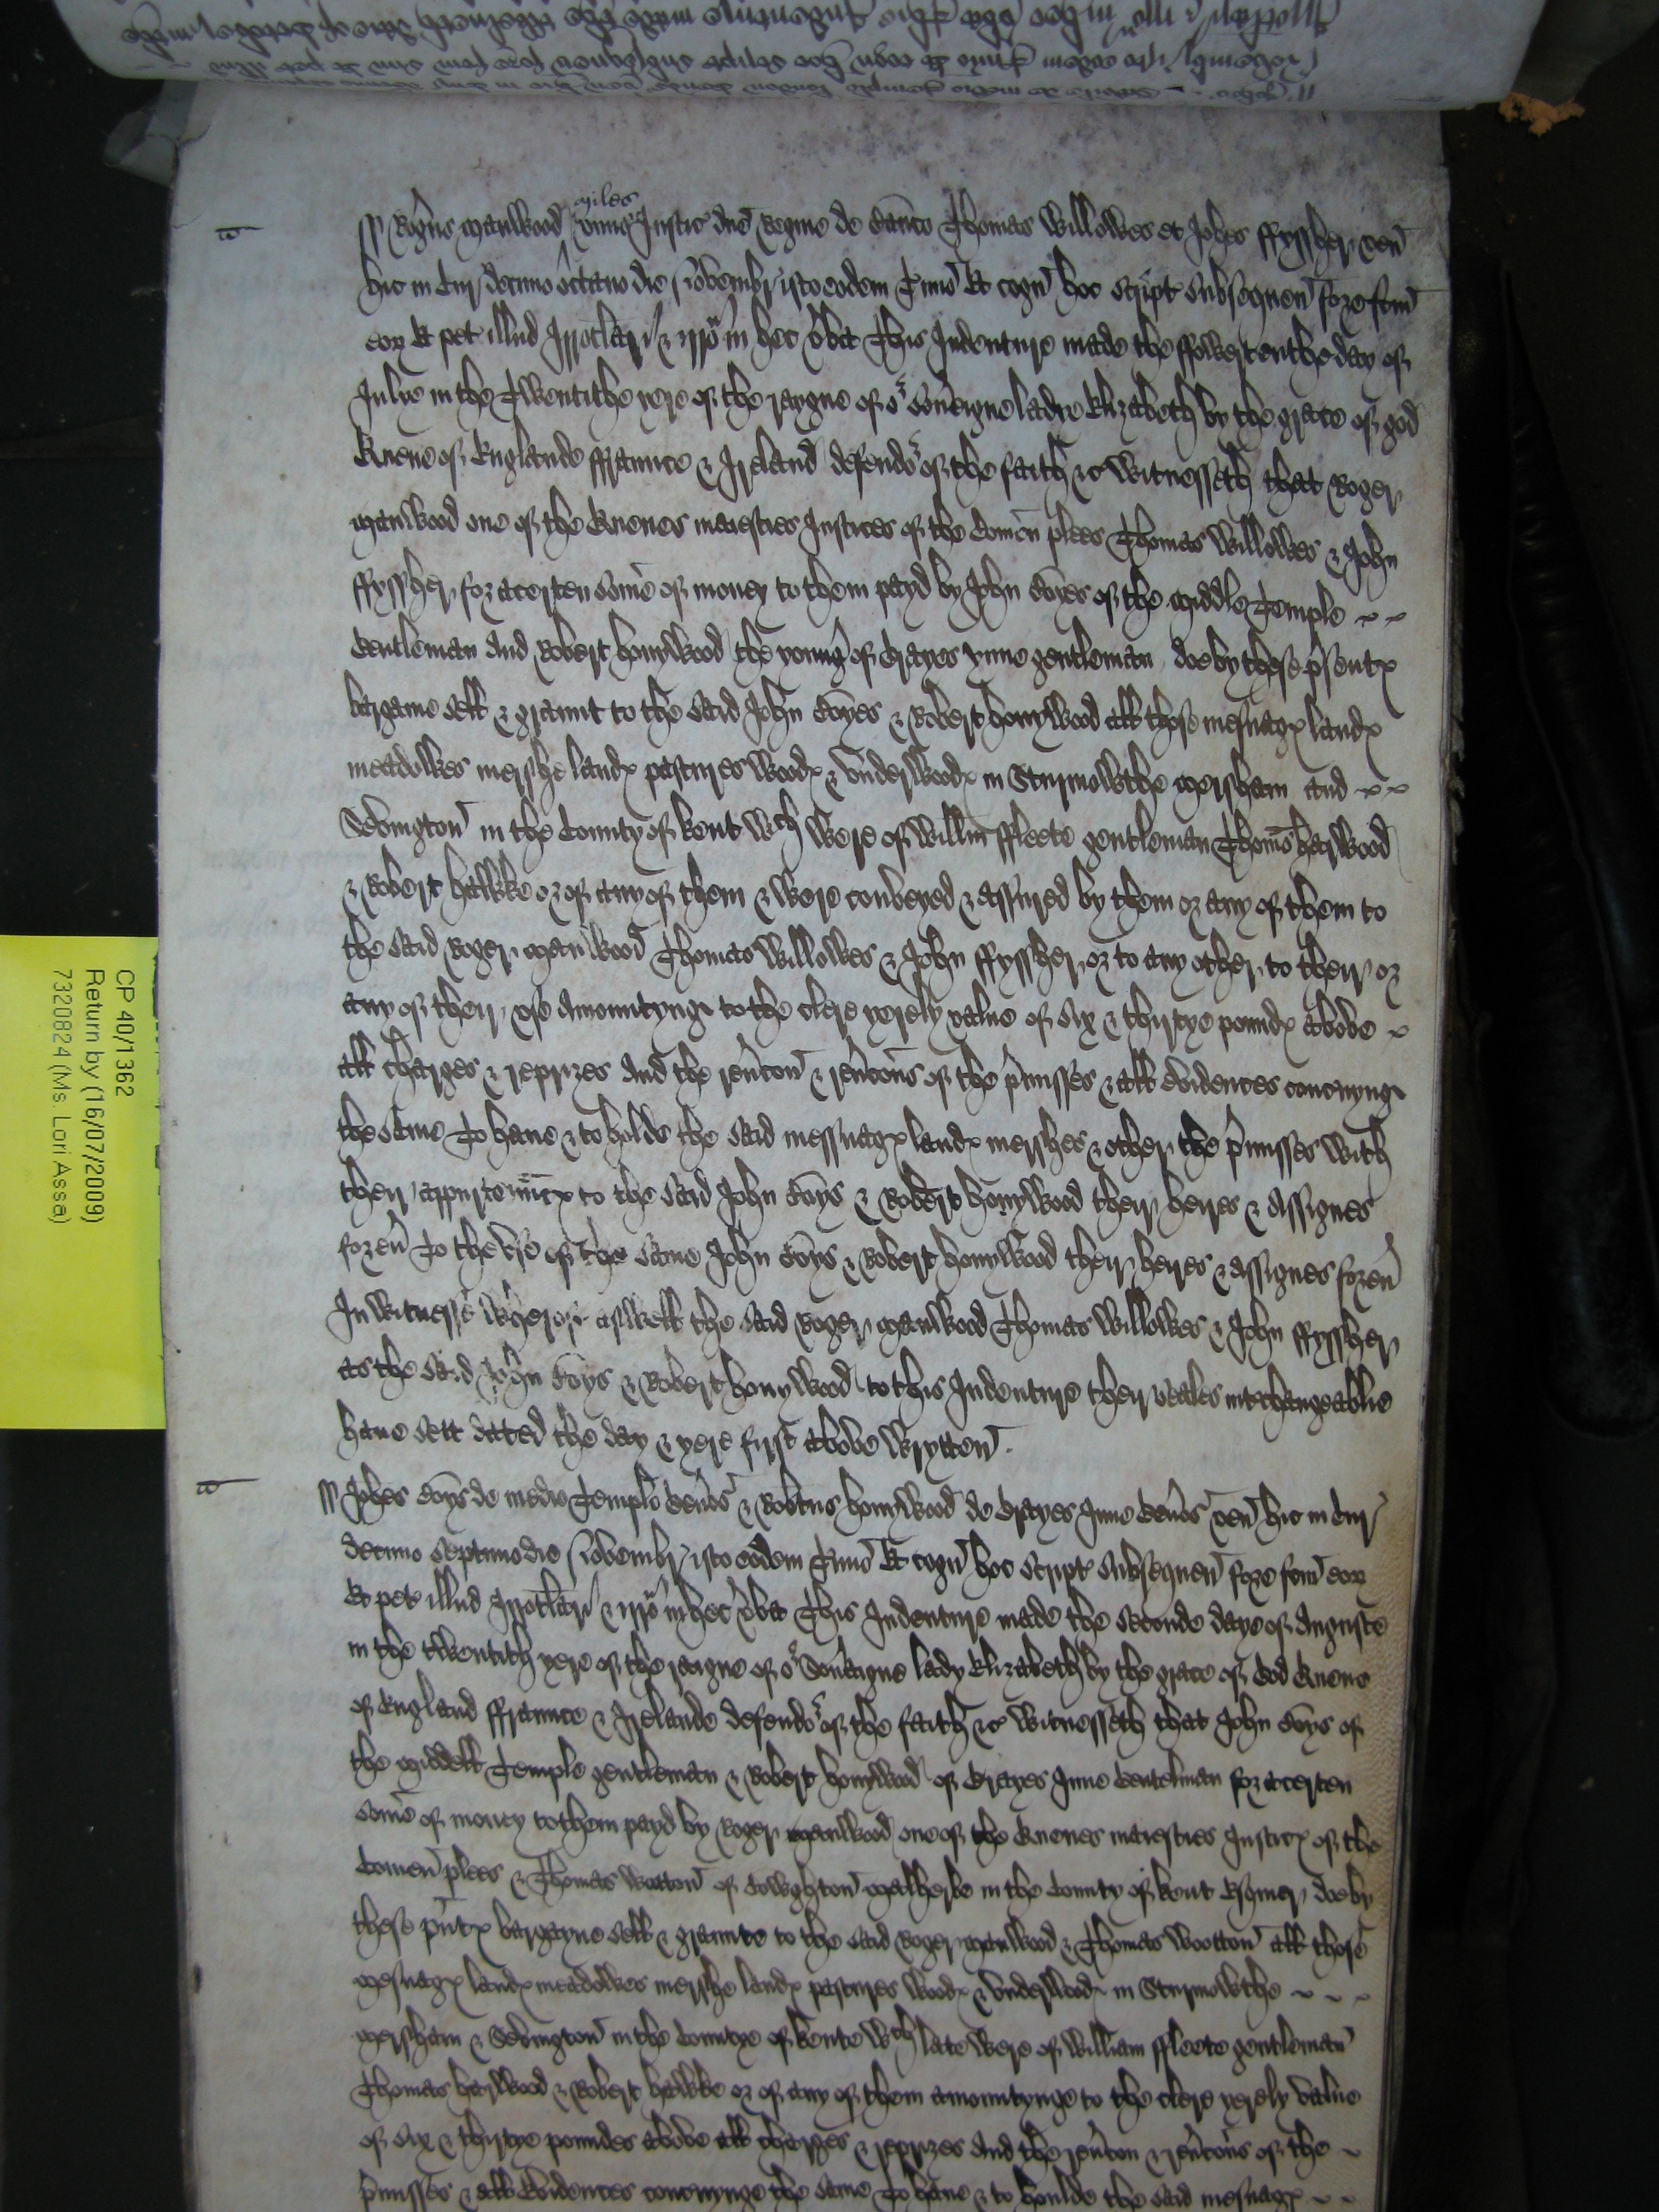 miles
Rogerus Manwood unus Justic dne Regine de Banco Thomas Willowes et Johes Fyssher ven
hic in Cur decimo octavo die Novembr isto eodem Timo Et cogn hoc script subsequen fore fcm
eoz Et pet illud Irrotlari & irro in hec vba This Indenture made the ffowertenthe day of
Julye in the Twentithe yere of the raygne of or Sovaigne ladye Elizabeth by the grace of god
Quene of Englande ffraunce & Ireland defendor of the faith &c Witnesseth that Roger
Manwood one of the Quenes maiesties Justices of the Comen plees Thomas Willowes & John
ffyssher for a certen Some of money to them payd by John Boyes of the Middle Temple
Gentleman And Robert honywood the yonger of Grayes Ynne gentleman doe by these psents
bargaine sell & graunt to the said John Boyes & Robert honywood all those mesuages lands
meadowes mersshe lands pastures woods & underwoods in Sturmowthe Mersham and
Sevington in the County of Kent wch were of Willm ffleete gentleman Thoms harwood
& Robert hawke or of any of them & were conveyed & assured by them or any of them to
the said Roger Manwood Thomas Willowes & John ffyssher or to any other to their or
any of their use Amountynge to the clere yerely value of six & thirtye pounds above
all charges & reprizes And the revcon & revcons of the pmisses & all evidences concnynge
the same To have & to holde the said messuages lands mersshes & other the pmisses with
their appurtennces to the said John Boys & Robert honywood their heires & assignes
forev To the use of the same John Boys & Robert honywood their heires & assignes forev
In witnesse whereof aswell the said Roger Manwood Thomas Willowes & John ffyssher
as the said John Boys & Robert honywood to this Indenture their seales intchangeablie
have sett dated the day & yere first above wrytten.
Johes Boys de medio Templo Genos & Robtus honywood de Grayes Inne Genos ven hic in Cur
decimo septimo die Novembr isto eodem Timo Et cogn hoc script subsequen fore fcm eoz
Et pet illud Irrotlari & irro in hec vba This Indenture made the seconde daye of Auguste
in the twentith yere of the raigne of or Sovaigne lady Elizabeth by the grace of God Quene
of England ffraunce & Irelande defendor of the faith &c Witnesseth that John Boys of
the Middell Temple gentleman & Robert honywood of Grayes Inne Gentelman for a certen
Some of money to them payd by Roger Manwood one of the Quenes maiesties Justics of the
Comen plees & Thomas Wotton of Bowghton Malherbe in the County of Kent Esquier doe by
these pnts bargayne sell & graunte to the said Roger Manwood & Thomas Wootton all those
Mesuages lands meadowes mersshe lands pastures woods & underwoods in Sturmowthe
Mersham & Sevington in the Countye of Kente wch late were of William ffleete gentleman
Thomas harwood & Robert hawke or of any of them amountynge to the clere yerely value
of six & thirtye poundes above all charges & reprizes And the revcon & revcons of the
pmisses & all Evidences concnynge the same To have & to houlde the said mesuages
CP 40/1362
Return by (16/07/2009)
7320824 (Ms. Lori Assa)